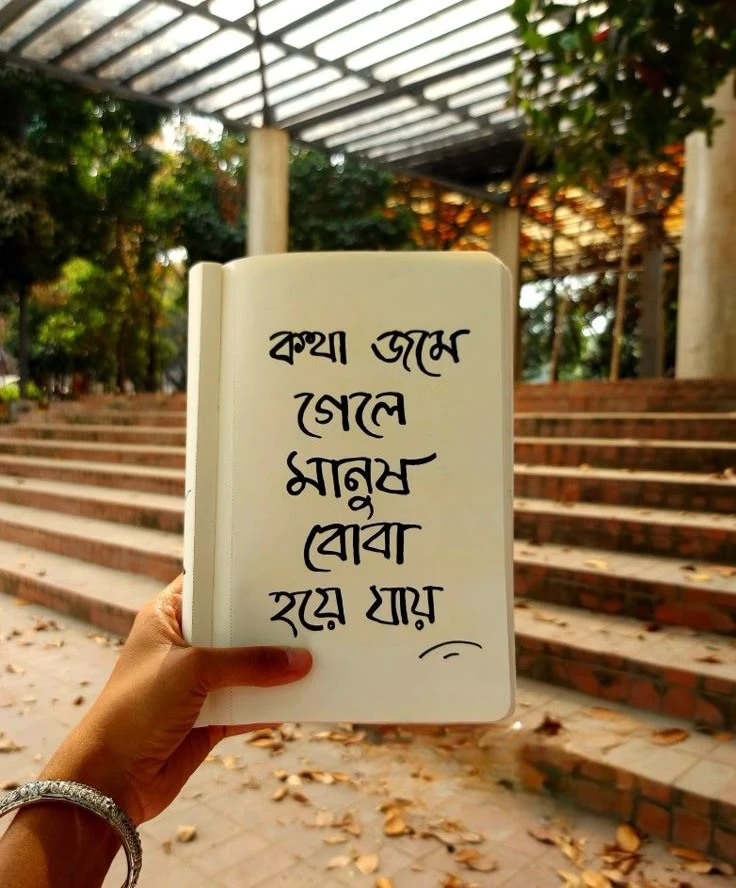 কথা জমে
গেলে
মানুষ
বোবা
হয়ে যায়